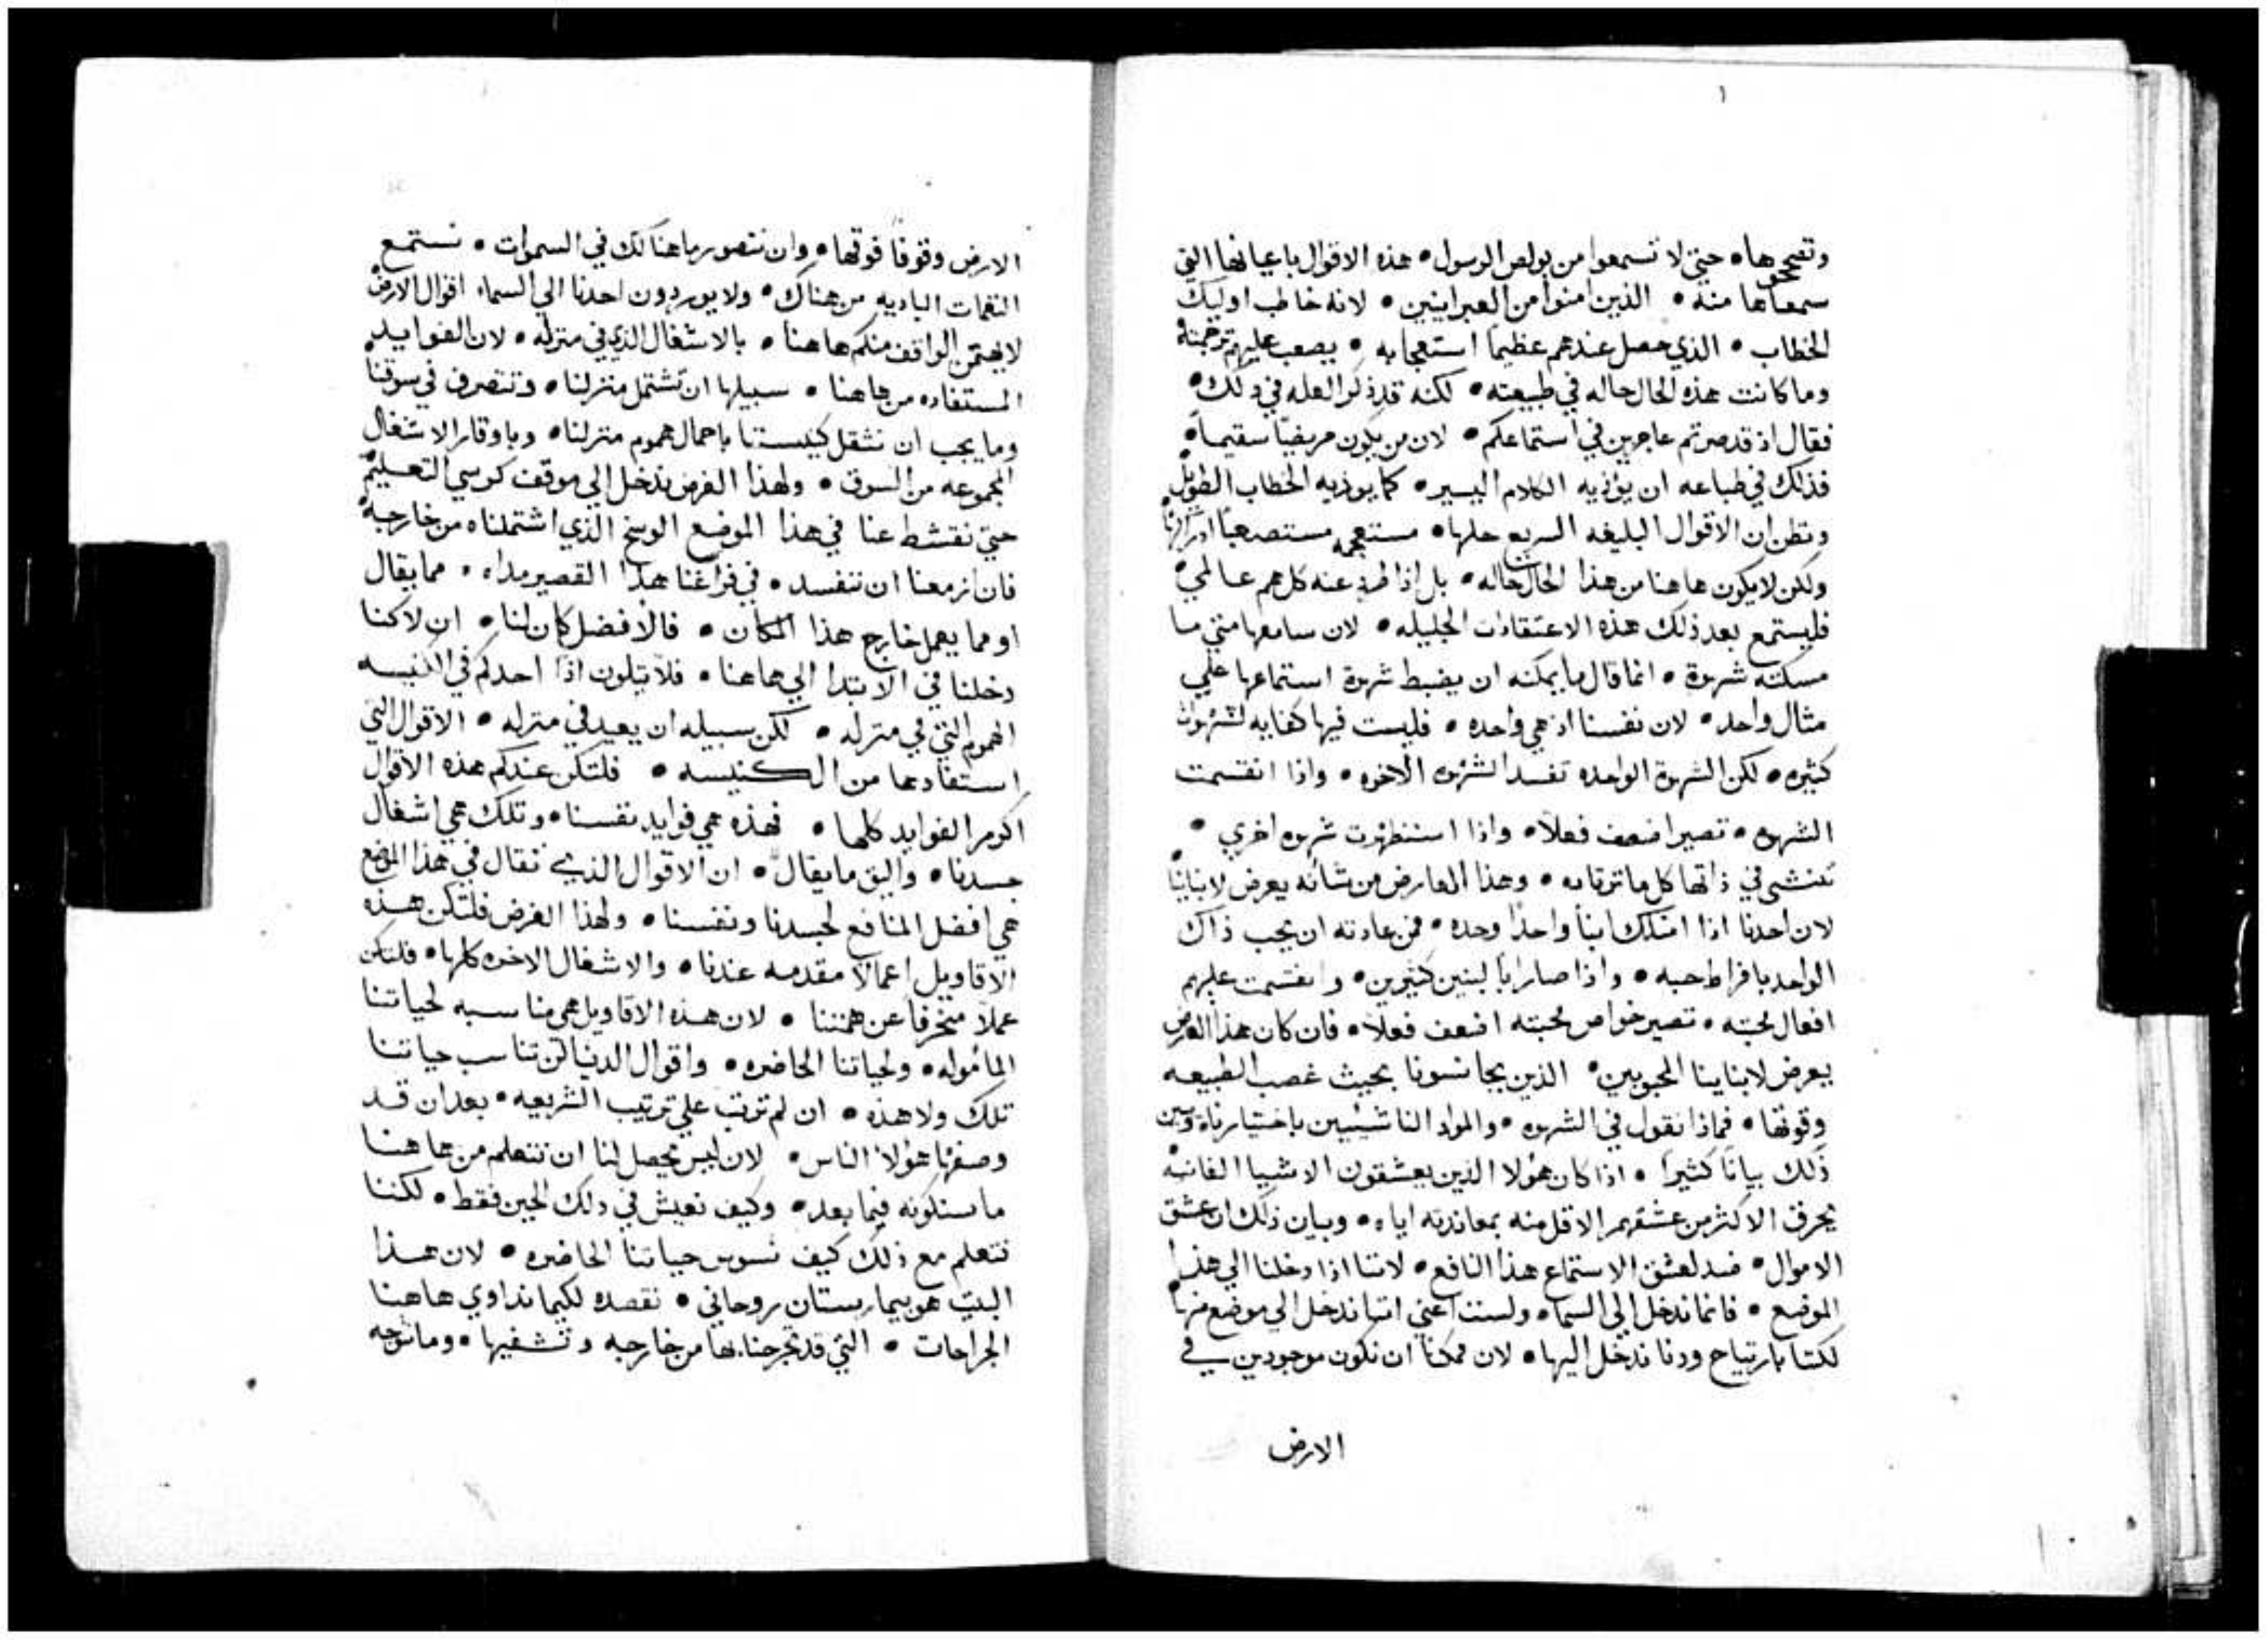 ١
وتصححوها • حتي لا تسمعوا من بولص الرسول • هذه الاقوال باعيانها التي
سمعاها منه • الذين امنوا من العبرانيين • لانه خاطب اوليك
الخطاب • الذي حصل عندهم عظيماً استعجابه • يصعب عليهم ترجمته
وما كانت هذه الحال حاله في طبيعته • لكنه قد ذكر العله في ذلك •
فقال اذ قد صرتم عاجزين في استماعكم • لان من يكون مريضاً سقيماً •
فذلك في طباعه ان يوذيه الكلام اليسير • كما يوذيه الخطاب الطويل
ويظن ان الاقوال البليغه السريع حلها • مستعجمه مستصعباً ادراكها
ولكن لا يكون هاهنا من هذا الحال حاله • بل اذا طرد عنه كل هم عالمي •
فليستمع بعد ذلك هذه الاعتقادات الجليله • لان سامعها متي ما
مسكته شهوة • انما قال ما يمكنه ان يضبط شهوة استماعها علي
مثال واحد • لان نفسنا اذ هي واحده • فليست فيها كفايه لشهوات
كثيره • لكن الشهوة الواحده تفسد الشهوه الاخره • واذا انقسمت
الشهوه • تصير اضعف فعلاً • واذا استظهرت شهوه اخري •
تنشي في ذاتها كل ما ترتاده • وهذا العارض من شانه يعرض لابناينا
لان احدنا اذا امتلك ابناً واحداً وحده • فمن عادته ان يحب ذاك
الواحد بافراط حبه • واذا صار اباً لبنين كثيرين • وانقسمت عليهم
افعال محبته • تصير خواص محبته اضعف فعلاً • فان كان هذا العارض
يعرض لابناينا المحبوبين • الذين يجانسونا بحيث غصب الطبيعه
وقوتها • فماذا نقول في الشهوه • والمواد الناشيين باختيارنا • وبين
ذلك بياناً كثيراً • اذا كان هولا الذين يعشقون الاشيا الفانيه
يحرف الاكثر من عشقهم الاقل منه بمعاندته اياه • وبيان ذلك ان عشق
الاموال • ضد لعشق الاستماع هذا النافع • لاننا اذا دخلنا الي هذا
الموضع • فانما ندخل الي السما • ولست اعني اننا ندخل الي موضع منها
لكننا بارتياح ودنا ندخل اليها • لان ممكناً ان نكون موجودين في
الارض
الارض وقوفاً فوقها • وان نتصور ما هنالك في السموات • نستمع
النغمات الباديه من هناك • ولا يوردون احدنا الي السماء اقوال الارض
لا يهتمن الواقف منكم هاهنا • بالاشغال الذي في منزله • لان الفوايد
المستفاده من هاهنا • سبيلها ان تشتمل منزلنا • وتتصرف في سوقنا
وما يجب ان نثقل كنيستنا باحمال هموم منزلنا • وباوقار الاشغال
المجموعه من السوق • ولهذا الغرض ندخل الي موقف كرسي التعليم
حتي نقشط عنا في هذا الموضع الوسخ الذي اشتملناه من خارجه
فان ازمعنا ان نتفسد • في فراغنا هذا القصير مداه • مما يقال
او مما يعمل خارج هذا المكان • فالافضل كان لنا • ان لا كنا
دخلنا في الابتدا الي هاهنا • فلا تتلون اذاً احدكم في الكنيسه
الهموم التي في منزله • لكن سبيله ان يعيد في منزله • الاقوال التي
استفادها من الكنيسه • فلتكن عندكم هذه الاقوال
اكرم الفوايد كلها • فهذه هي فوايد نفسنا • وتلك هي اشغال
جسدنا • واليق ما يقال • ان الاقوال الذي تقال في هذا الموضع
هي افضل المنافع لجسدنا ونفسنا • ولهذا الغرض فلتكن هذه
الاقاويل اعمالاً مقدمه عندنا • والاشغال الاخره كلها • فلتكن
عملاً منحرفاً عن همتنا • لان هذه الاقاويل هي مناسبه لحياتنا
الماموله • ولحياتنا الحاضره • واقوال الدنيا لن تناسب حياتنا
تلك ولا هذه • ان لم ترتب علي ترتيب الشريعه • بعد ان قد
وصفرنا هولا الناس • لان ليس يحصل لنا ان نتعلم من هاهنا
ما سنكونه فيما بعد • وكيف نعيش في ذلك الحين فقط • لكننا
نتعلم مع ذلك كيف نسوس حياتنا الحاضره • لان هذا
البيت هو بيمارستان روحاني • نقصده لكيما نداوي هاهنا
الجراحات • التي قد تجرحنا بها من خارجه ونشفيها • وما نتوجه